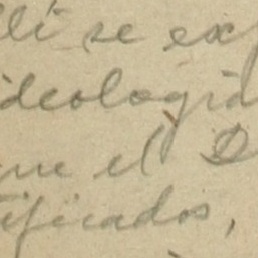 lí se ex
ideologia
ue el D
tificados,